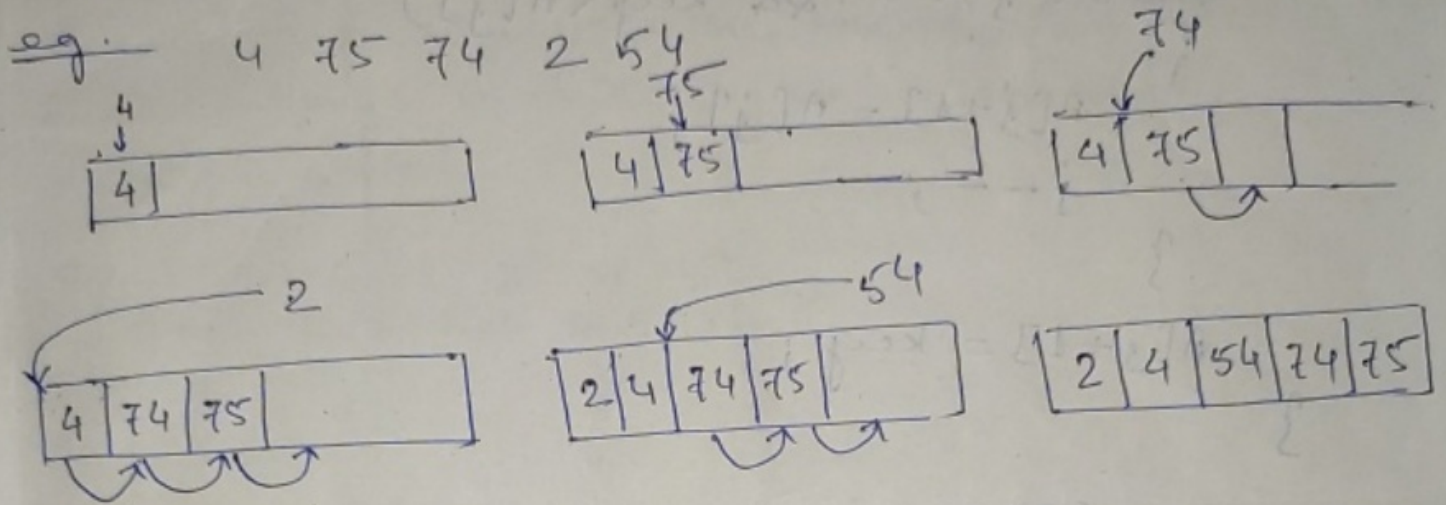 eg. 4 75 74 2 54
4
4
75
4 75
74
4 75
2
4 74 75
54
2 4 74 75
2 4 54 74 75